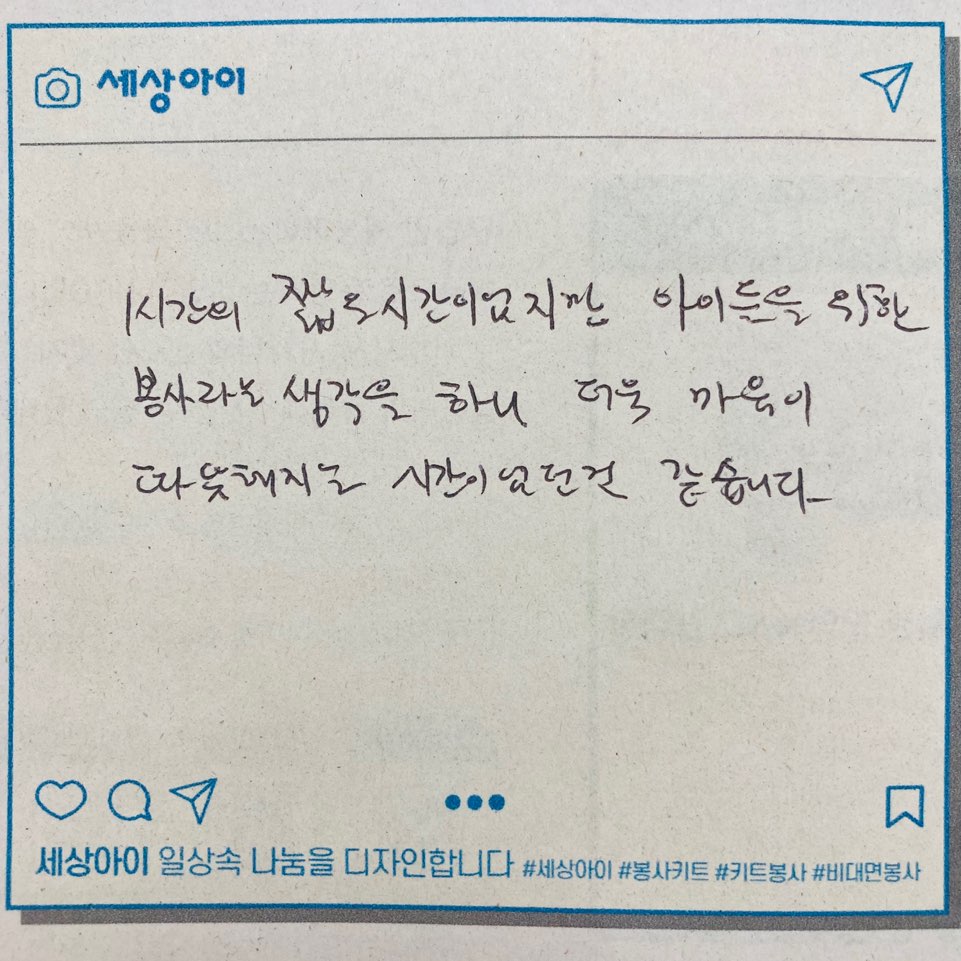 세상아이
1시간의 짧은시간이었지만 아이들을 위한
봉사라는 생각을 하니 더욱 마음이
따뜻해지는 시간이었던것 같습니다.
세상아이 일상속 나눔을 디자인합니다 #세상아이 #봉사키트 #키트봉사 #비대면봉사